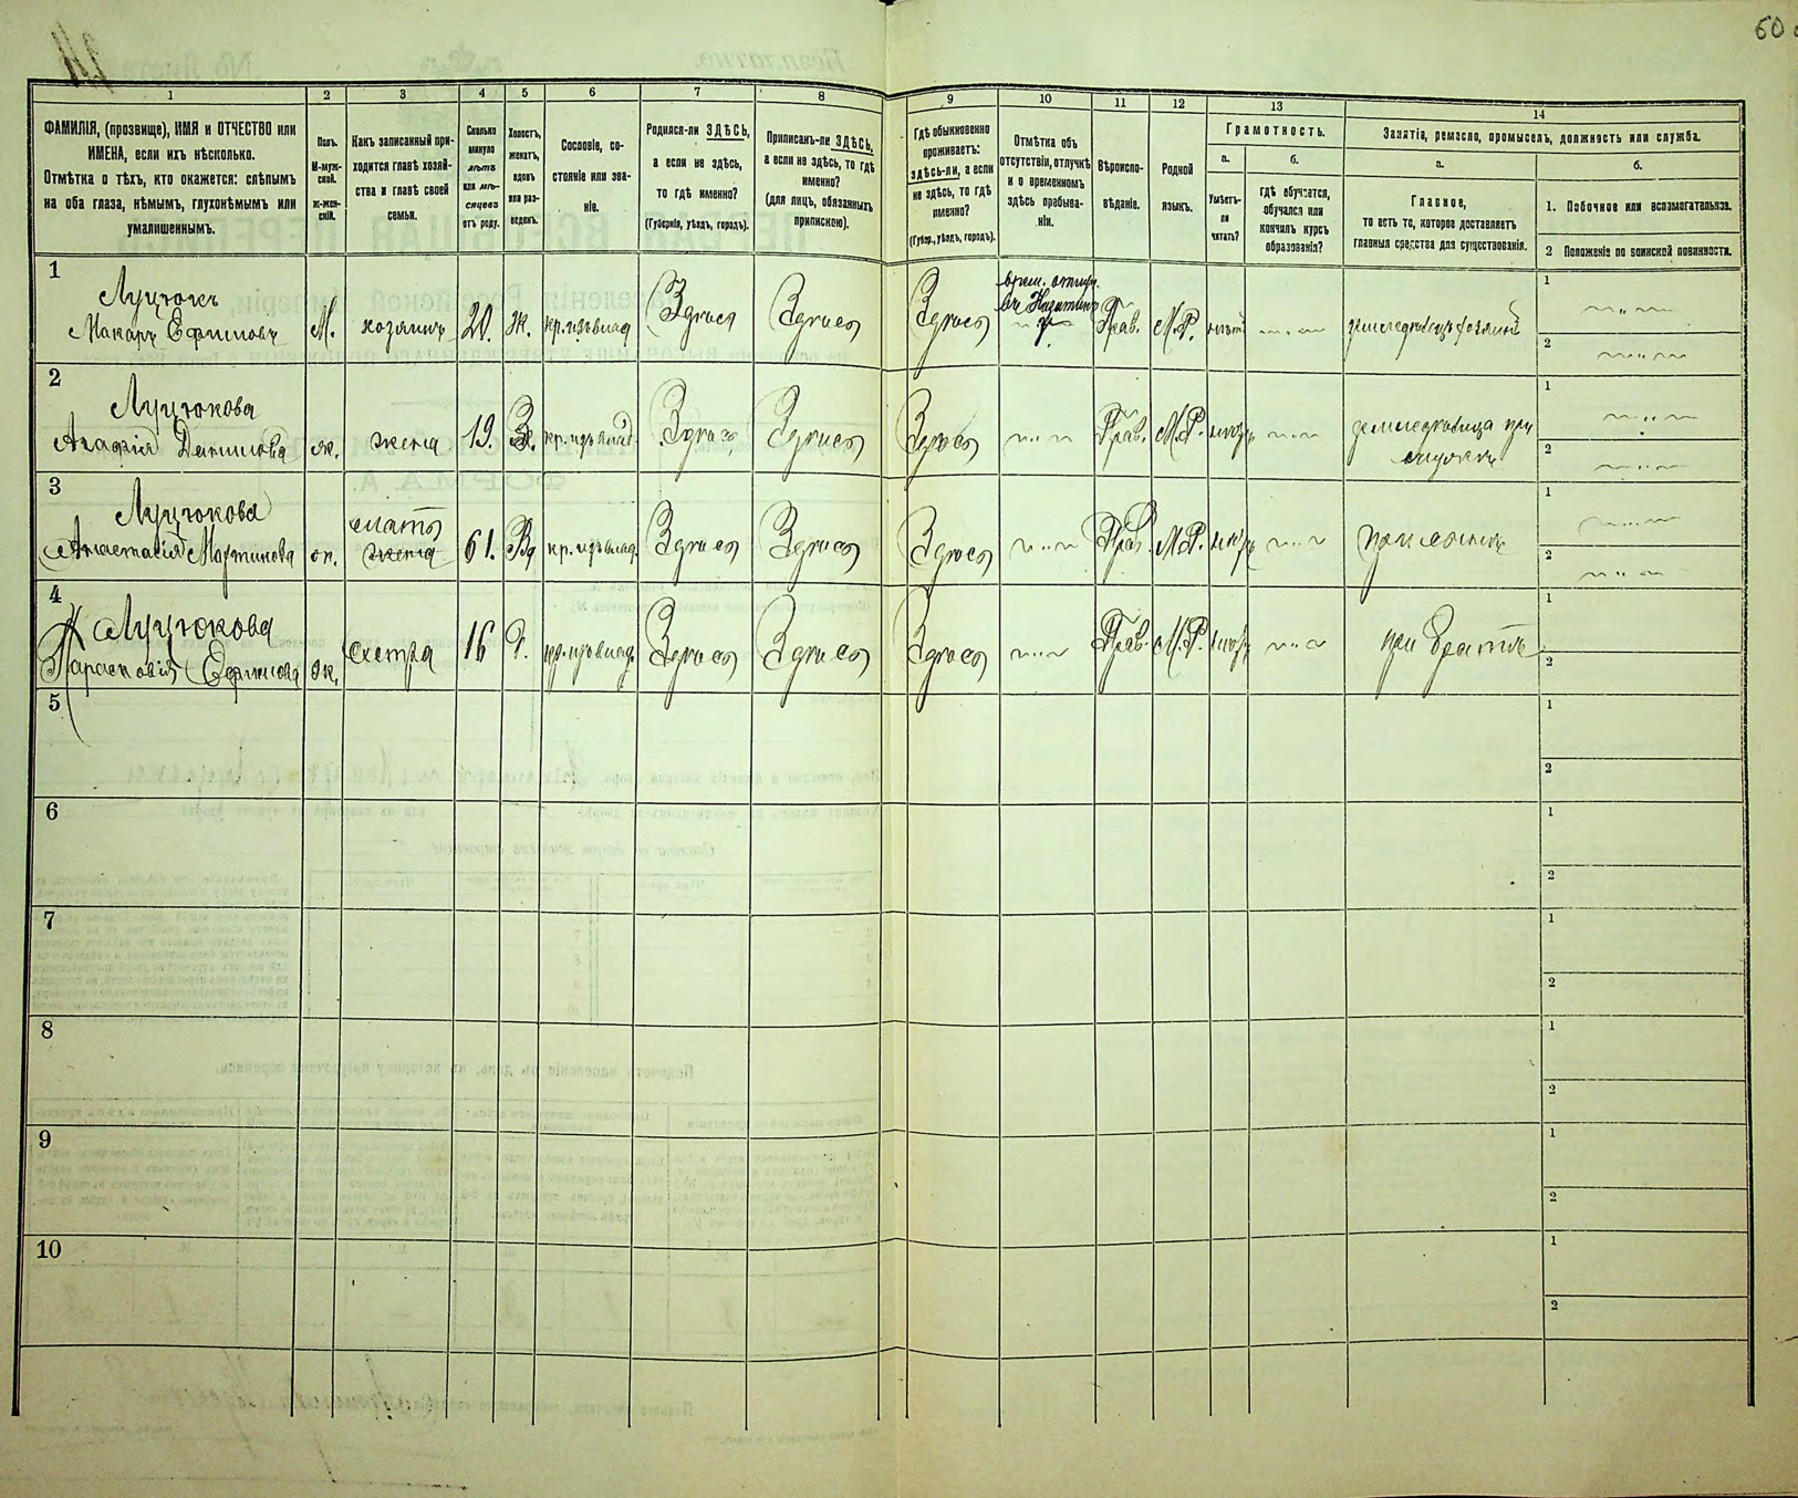 60
1 2 3 4 5 6 7 8 9 10 11 12 13 14
ФАМИЛІЯ, (прозвище), ИМЯ и ОТЧЕСТВО или
ИМЕНА, если ихъ нѣсколько.
Отмѣтка о тѣхъ, кто окажется: слѣпымъ
на оба глаза, нѣмымъ, глухонѣмымъ или
умалишеннымъ.
Полъ.
М-муж-
ской.
Ж-жен-
скій.
Какъ записанный при-
ходится главѣ хозяй-
ства и главѣ своей
семьи.
Сколько
минуло
лѣтъ
или мѣ-
сяцевъ
отъ роду.
Холостъ,
женатъ,
вдовъ
или раз-
веденъ.
Сословіе, со-
стояніе или зва-
ніе.
Родился-ли ЗДѢСЬ,
а если не здѣсь,
то гдѣ именно?
(Губернія, уѣздъ, городъ).
Приписанъ-ли ЗДѢСЬ,
а если не здѣсь, то гдѣ
именно?
(для лицъ, обязанныхъ
припискою).
Гдѣ обыкновенно
проживаетъ:
здѣсь-ли, а если
не здѣсь, то гдѣ
именно?
(Губер., уѣздъ, городъ).
Отмѣтка объ
отсутствіи, отлучкѣ
и о временномъ
здѣсь пребыва-
ніи.
Вѣроиспо-
вѣданіе.
Родной
языкъ.
Грамотность.
а.
Умѣетъ-
ли
читать?
б.
гдѣ обучается,
обучался или
кончилъ курсъ
образованія?
Занятія, ремесло, промыселъ, должность или служба.
а.
Главное,
то есть то, которое доставляетъ
главныя средства для существованія.
б.
1. Побочное или вспомогательное.
2 Положеніе по воинской повинности.
1
Луцюкъ
Макаръ Ефимовъ
М. хозяинъ 20. ж. кр. изъ влад.
Здѣсь Здѣсь Здѣсь
Прав. М.Р.
1
2
2
Луцюкова
Агафія Данилова
ж. жена 19. З. кр. изъ влад.
Здѣсь Здѣсь Здѣсь
Прав. М.Р.
1
2
3
Луцюкова
Анастасія Мартинова
ж. мать
жена
61. Вд. кр. изъ влад.
Здѣсь Здѣсь Здѣсь
Прав. М.Р.
при сынѣ
1
2
4
Луцюкова
Парасковія Ефимова
ж. сестра 16 кр. изъ влад.
Здѣсь Здѣсь Здѣсь
Прав. М.Р.
при братѣ
1
2
5
1
2
6
1
2
7
1
2
8
1
2
9
1
2
10
1
2